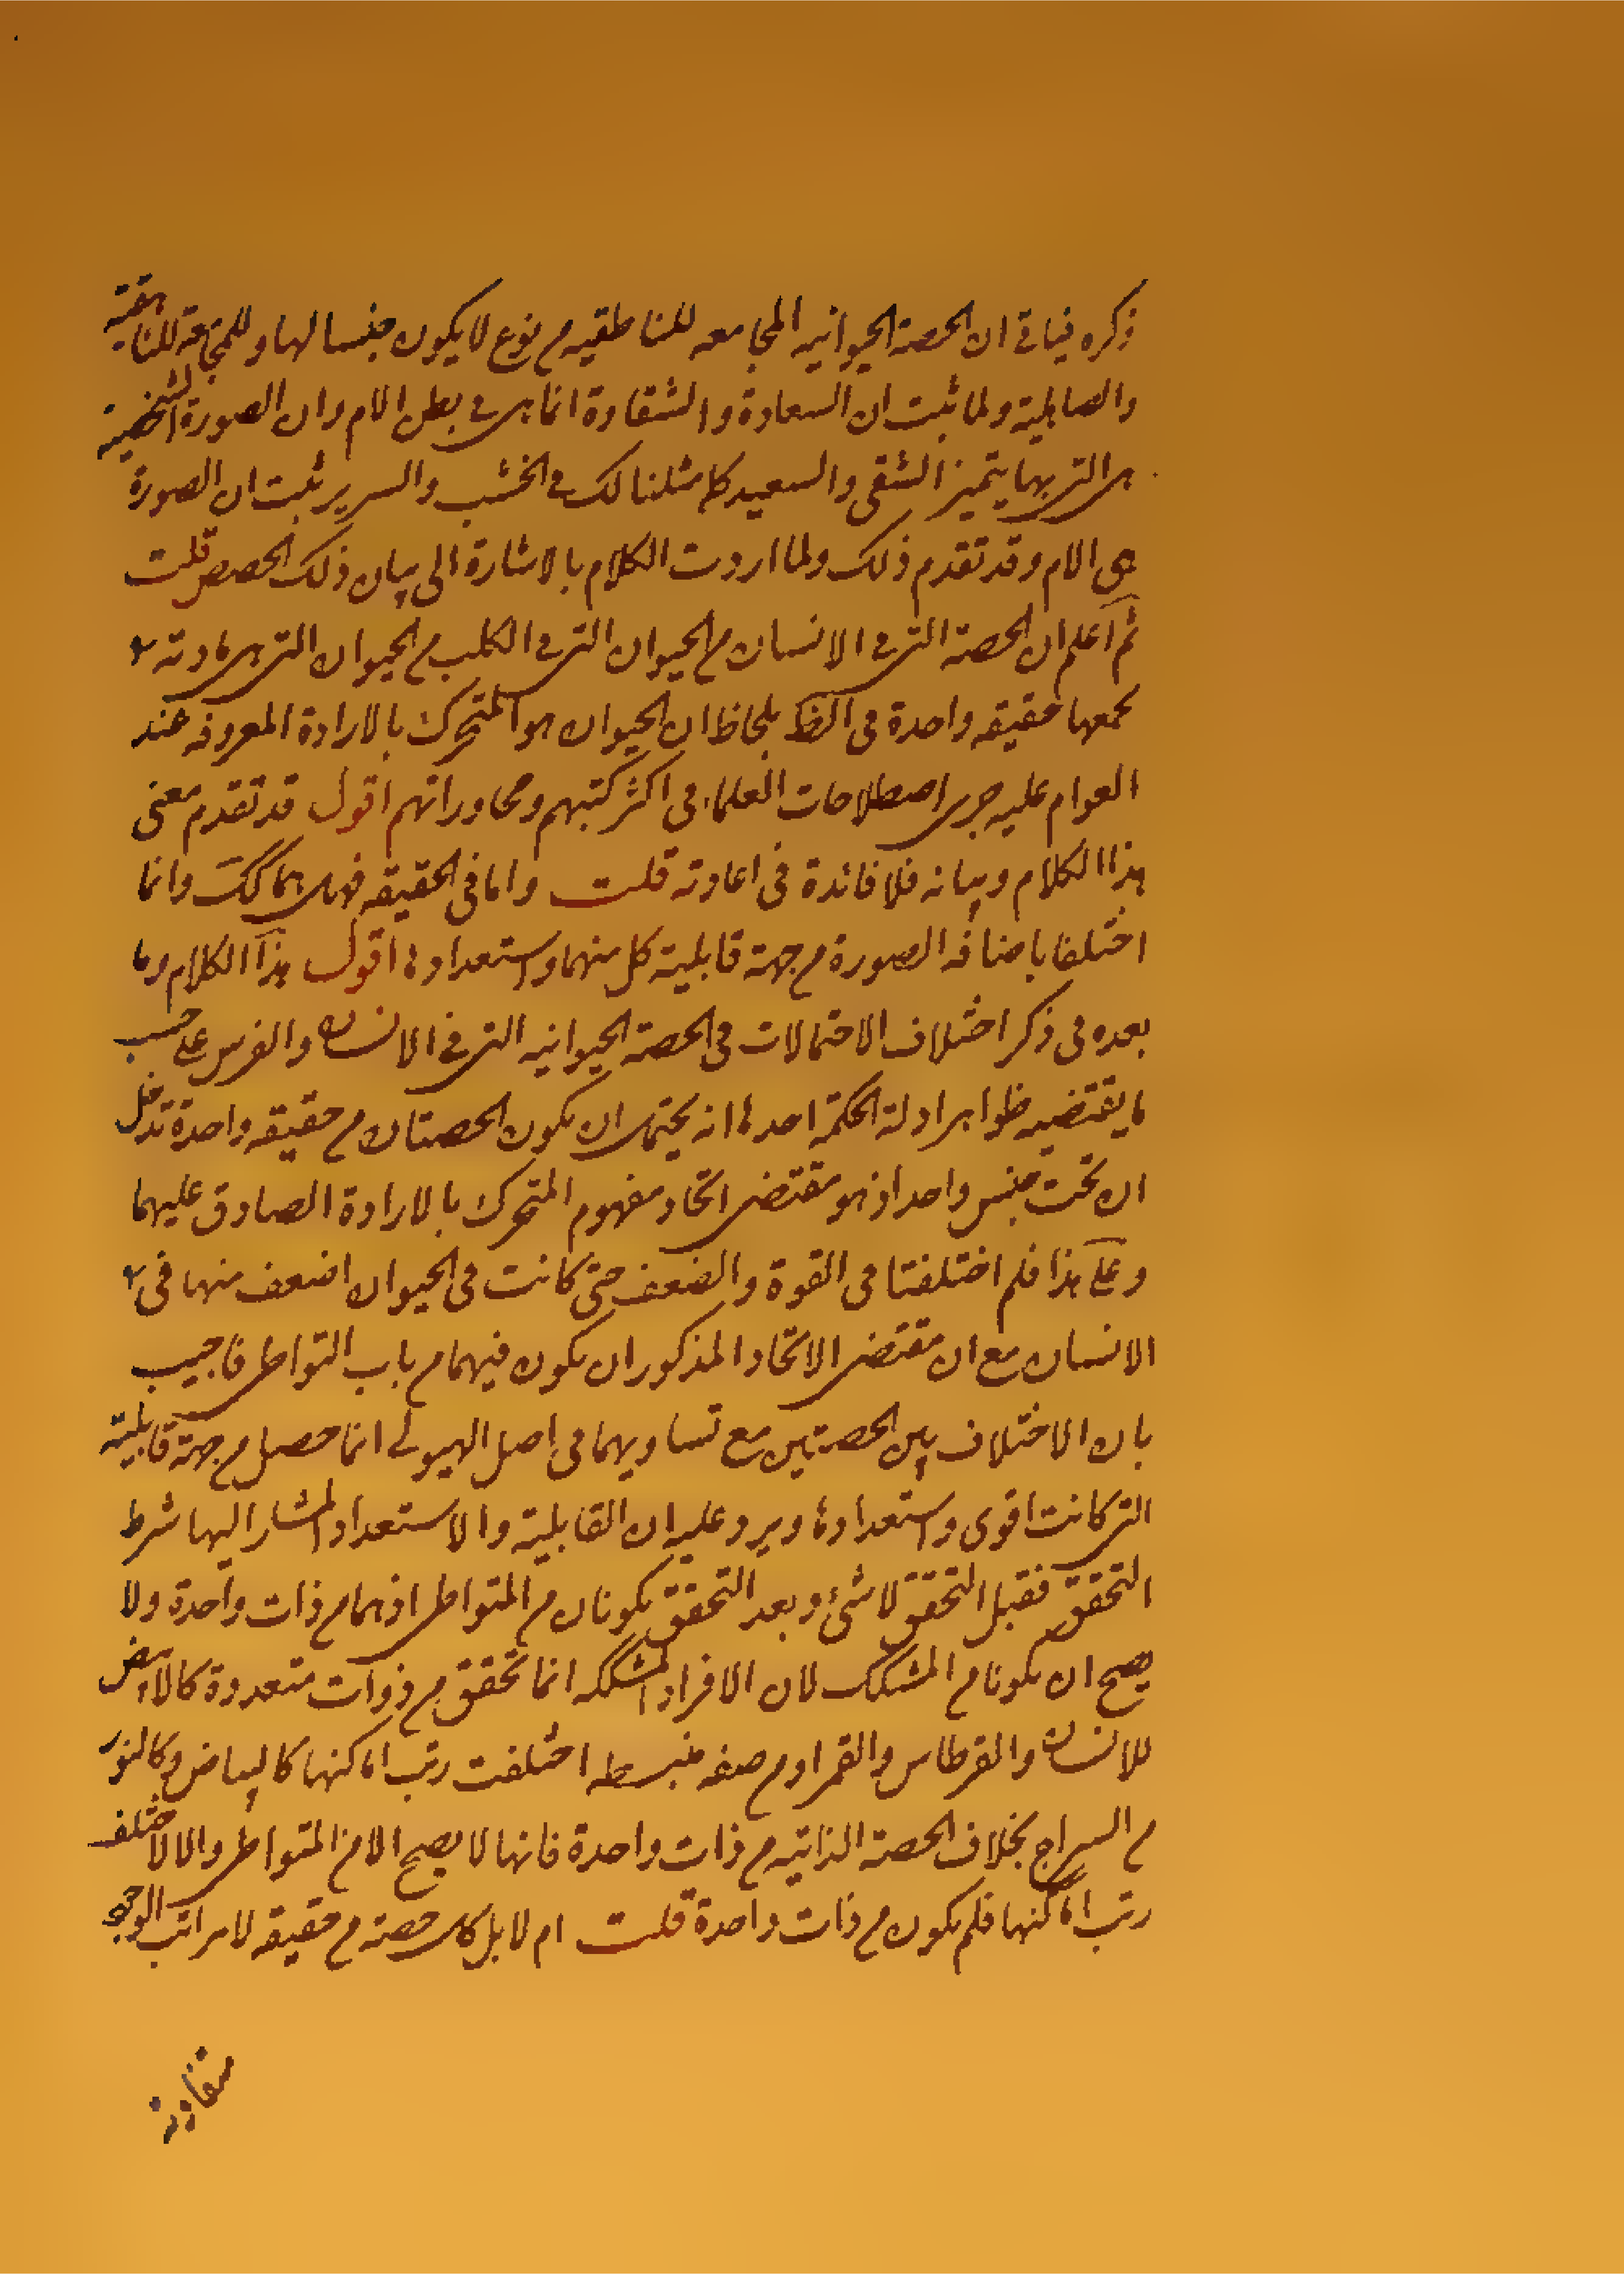 ذكره فيما ياتي ان الحصة الحيوانيه المجامعه للناطقيه من نوع لا يكون جنسا لها وللمجامعة للناهقية
والصاهلية ولما ثبت ان السعادة والشقاوة انما هي في بطن الام وان الصورة الشخصية
هي التي بها يتميز الشقي والسعيد كما مثلنا لك في الخشب والسرير ثبت ان الصورة
هي الام وقد تقدم ذلك ولما اردت الكلام بالاشارة الى بيان ذلك الحصص قلت
ثم اعلم ان الحصة التي في الانسان من الحيوان التي في الكلب من الحيوان التي هي مادته
يجمعها حقيقه واحدة في الظ بلحاظ ان الحيوان هو المتحرك بالارادة المعروفه عند
العوام عليه جرى اصطلاحات العلماء في اكثر كتبهم ومحاوراتهم اقول قد تقدم معنى
هذا الكلام وبيانه فلا فائدة في اعادته قلت واما في الحقيقه فهي هما كك وانما
اختلفا باضافه الصورة من جهة قابلية كل منهما واستعدادها اقول هذا الكلام وما
بعده في ذكر اختلاف الاحتمالات في الحصة الحيوانيه التي في الانسان والفرس على حسب
ما يقتضيه ظواهر ادلة الحكمة احدها انه يحتمل ان يكون الحصتان من حقيقه واحدة تدخل
ان تحت جنس واحد اذ هو مقتضى اتحاد مفهوم المتحرك بالارادة الصادق عليهما
وعلى هذا فلم اختلفتا في القوة والضعف حتى كانت في الحيوان اضعف منها في
الانسان مع ان مقتضى الاتحاد المذكور ان يكون فيهما من باب التواطي فاجيب
بان الاختلاف بين الحصتين مع تساويهما في اصل الهيولى انما حصل من جهة قابلية
التي كانت اقوى واستعدادها ويرد عليه ان القابلية والاستعداد المشار اليها شرط
التحقق فقبل التحقق لا شيء وبعد التحقق يكونان من المتواطي اذ هما من ذات واحدة ولا
يصح ان يكونا من المشكك لان الافراد المشككه انما تحقق من ذوات متعددة كالابيض
للانسان والقرطاس والقمر او من صفه منبسطه اختلفت رتب اماكنها كالبياض وكالنور
من السراج بخلاف الحصة الذاتيه من ذات واحدة فانها لا يصح الا من المتواطي والا لاختلف
رتب اماكنها فلم يكون من ذات واحدة قلت ام لا بل كل حصة من حقيقه لامراتب الوجو